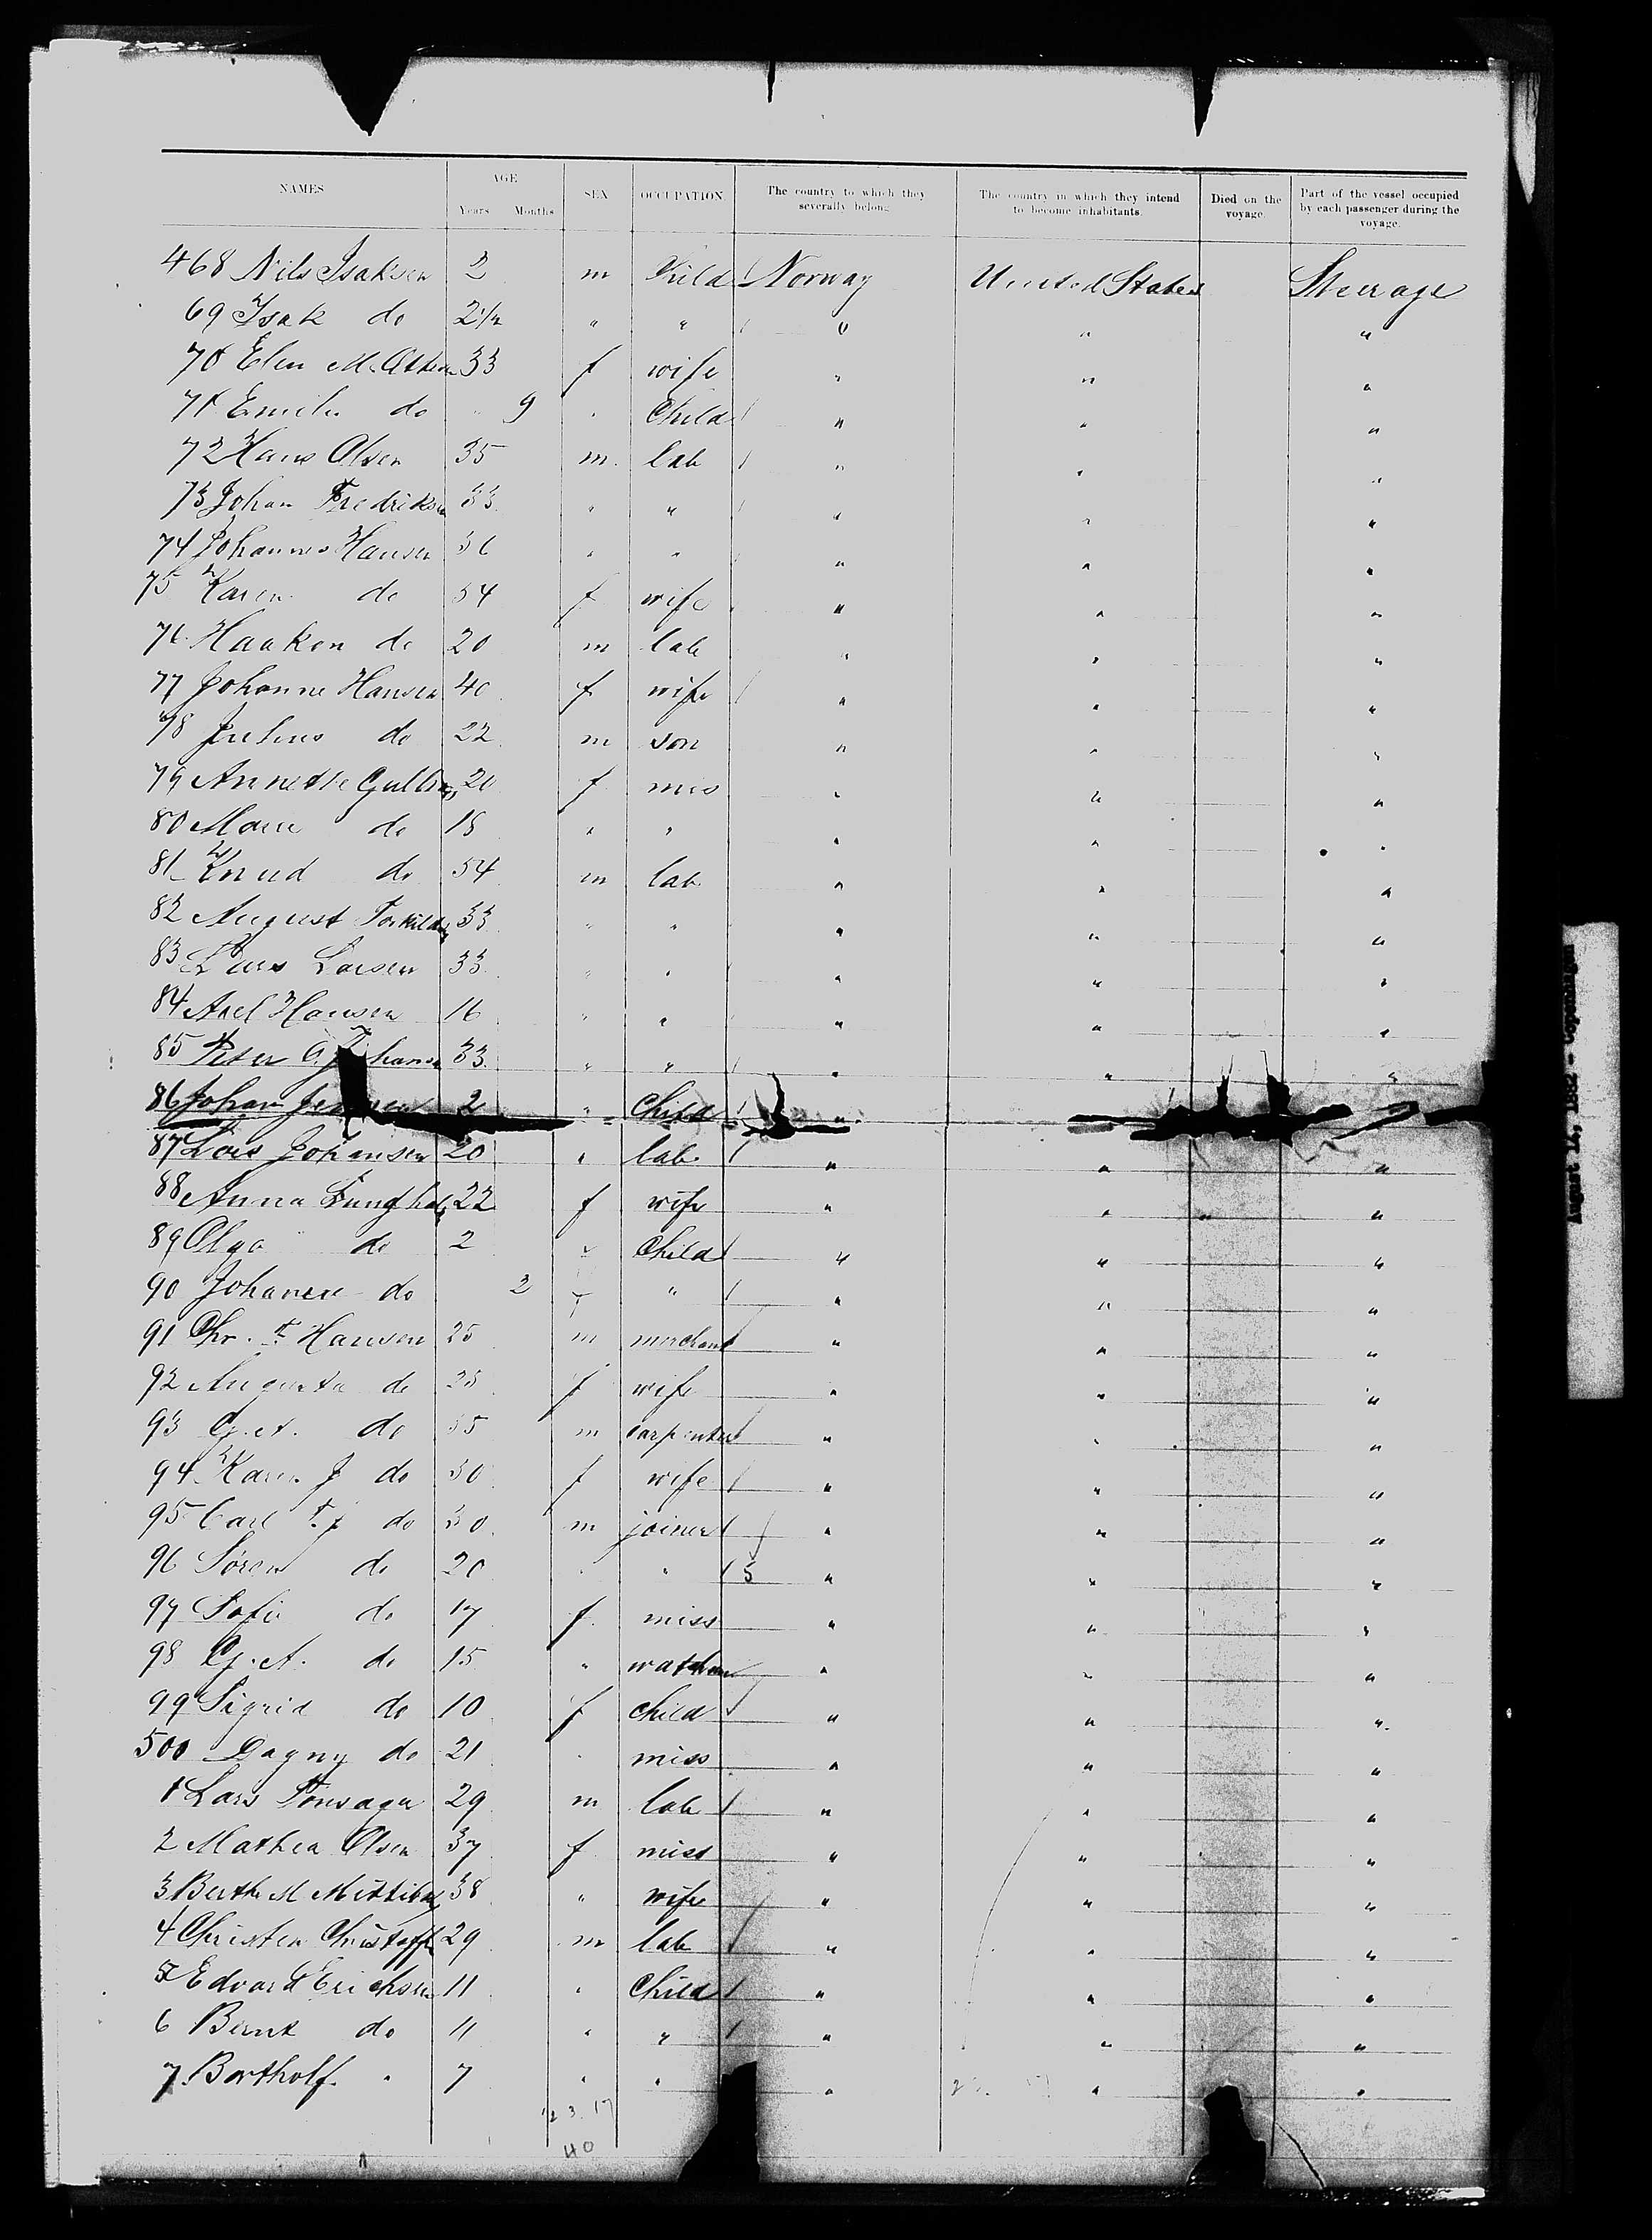 NAMES AGE Years Months SEX OCCUPATION The country to which they severally belong The country in which they intend to become inhabitants. Died on the voyage. Part of the vessel occupied by each passenger during the voyage.
468 Nils Isaksen 2 m Child Norway United States Steerage
69 Isak do 2 1/2 " " " " "
70 Elen M. 33 f wife " " "
71 Emilie do " 9 " Child " " "
72 Hans Olsen 35 m. lab " " "
73 Johan Fredriksen 33 " " " " "
74 Johannes Hansen " " " " "
75 Karen do 54 f wife " " "
76 Haakon do 20 m lab " " "
77 Johanne Hansen 40 f wife " " "
78 Julius do 22 m son " " "
79 Annette 20 f mis " " "
80 Marie do 18 " " " " "
81 Knud do 54 m lab " " "
82 August 33 " " " " "
83 Lars Larsen 33 " " " " "
84 Axel Hansen 16 " " " " "
85 Peter 33 " " " " "
86 Johan 2 " Child "
87 Johansen 20 " lab " " "
88 Anna 22 f wife " " "
89 Olga do 2 " Child " " "
90 do " " " "
91 Chr. F. Hansen 25 m merchant " " "
92 Augusta do f wife " " "
93 G. A. do m carpenter " " "
94 J do 30 f wife " " "
95 Carl do 30 m joiner " " "
96 Søren do 20 " " 5 " " "
97 Sofie do 17 f miss " " "
98 G. A. do 15 " " " "
99 Sigrid do 10 f child " " "
500 Dagny do 21 " miss " " "
1 Lars 29 m lab " " "
2 Mathea Olsen 37 f miss " " "
3 Berthe M 38 " wife " " "
4 Christen 29 m lab " " "
5 Edvard Erichsen 11 " Child " " "
6 Bernt do 11 " " " " "
7 Bertholf " 7 " " " " "
23. 17
40
August 17, 1882 - Copenhagen